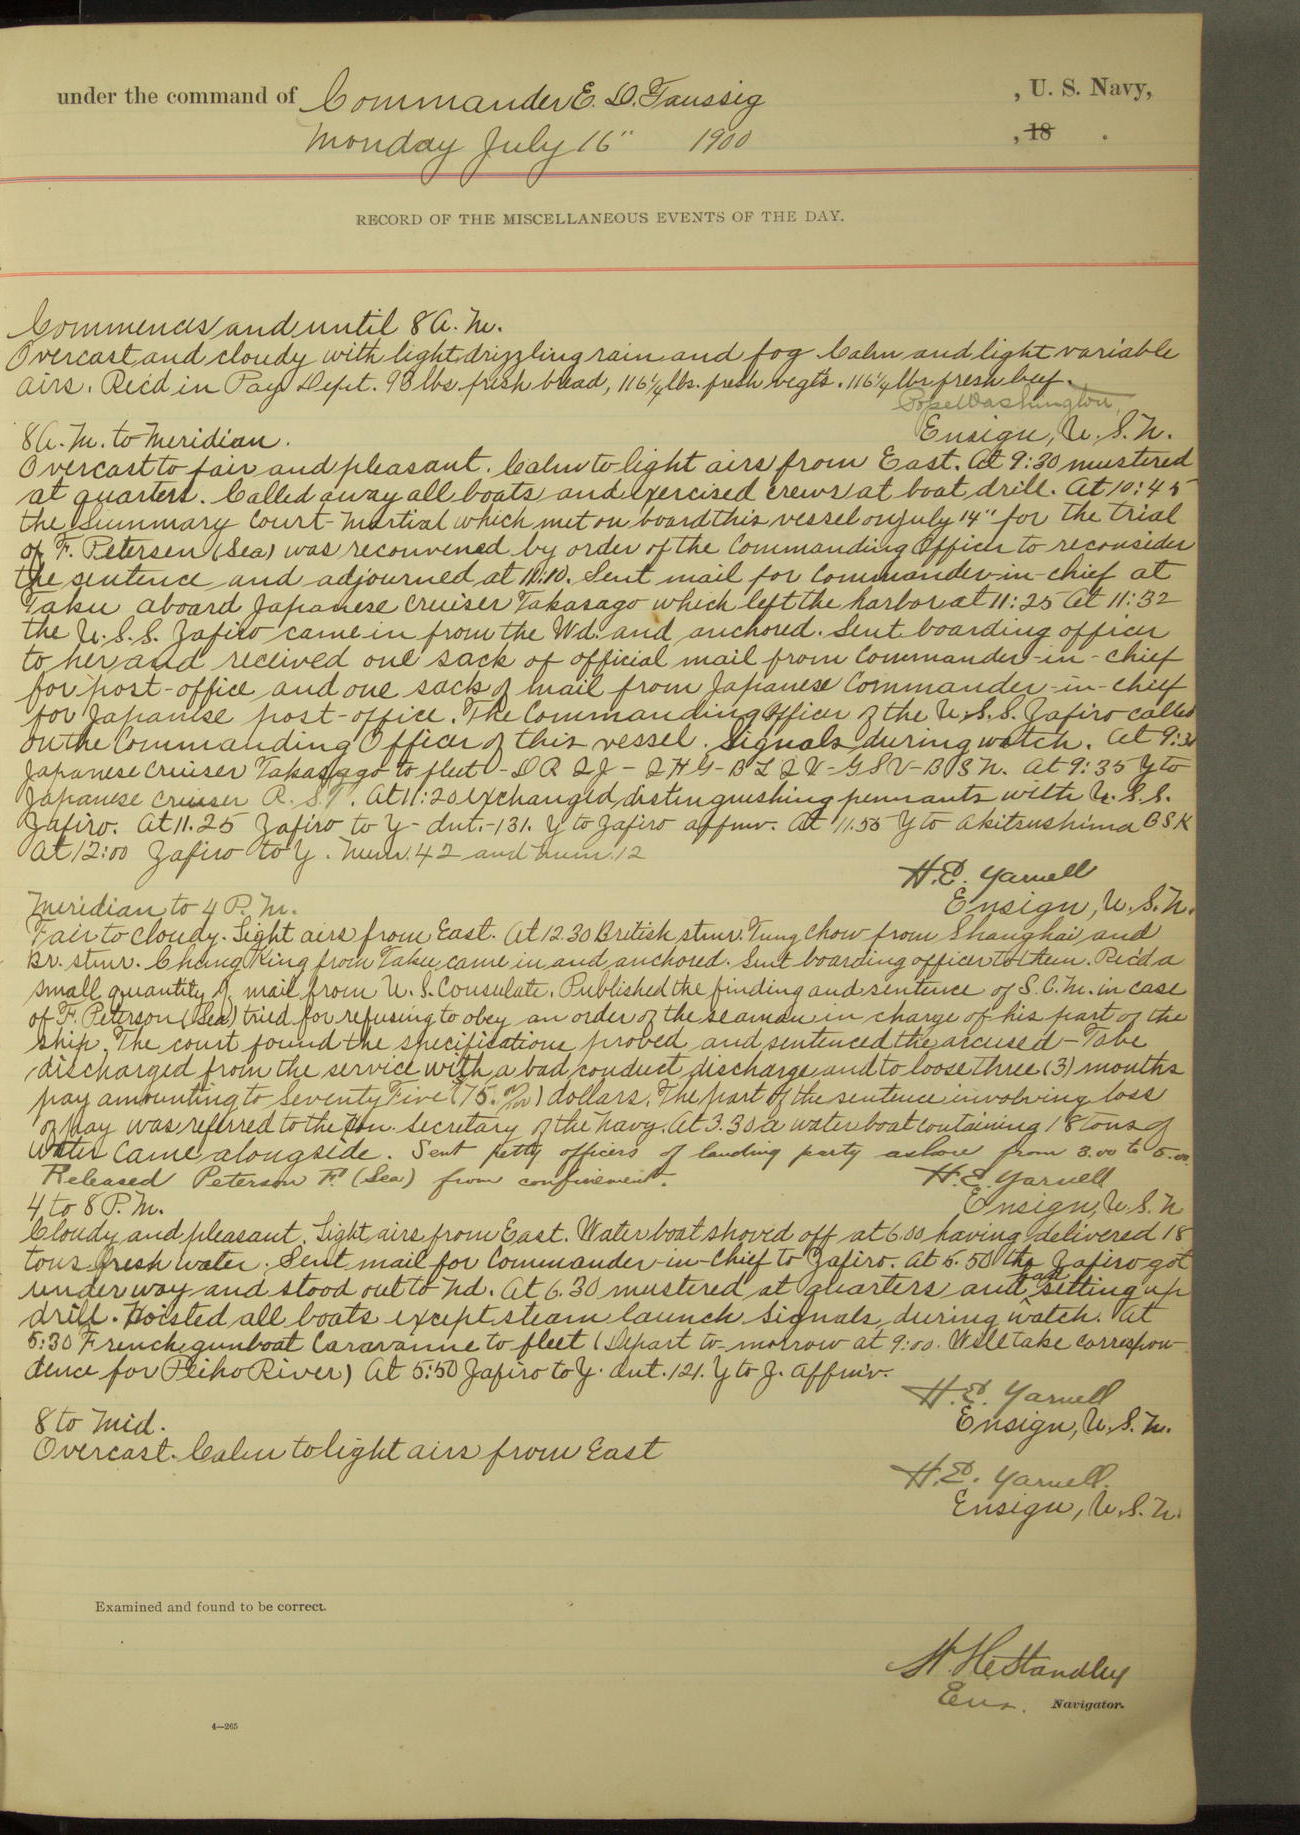 under the command of Commander E. D. Taussig , U. S. Navy,
Monday July 16" 1900 , 18 .
RECORD OF THE MISCELLANEOUS EVENTS OF THE DAY.
Commences and until 8 A. M.
Overcast and cloudy with light drizzling rain and fog Calm and light variable
airs. Rec'd in Pay Dept. 98 lbs. fresh bread, 116 1/4 lbs. fresh vegt's. 116 1/4 lbs fresh beef.
Pope Washington,
Ensign, U. S. N.
8 A. M. to Meridian.
Overcast to fair and pleasant. Calm to light airs from East. At 9:30 mustered
at quarters. Called away all boats and exercised crews at boat drill. At 10:45
the Summary Court-Martial which met on board this vessel on July 14" for the trial
of F. Petersen (Sea) was reconvened by order of the Commanding Officer to reconsider
the sentence and adjourned at 11:10. Sent mail for Commander-in-chief at
Taku aboard Japanese cruiser Takasago which left the harbor at 11:25 At 11:32
the U. S. S. Zafiro came in from the Wd. and anchored. Sent boarding officer
to her and received one sack of official mail from Commander-in-chief
for post-office and one sack of mail from Japanese Commander-in-chief
for Japanese post-office. The Commanding Officer of the U. S. S. Zafiro called
on the Commanding Officer of this vessel. Signals during watch. At 9:30
Japanese cruiser Takasago to fleet - D R Q J - Q H G - B L Q V - G S V - B S N. At 9:35 Y to
Japanese cruiser R. S. T. At 11:20 exchanged distinguishing pennants with U. S. S.
Zafiro. At 11.25 Zafiro to Y - dut. - 131. Y to Zafiro affmv. At 11.55 Y to Akitsushima B S K
At 12:00 Zafiro to Y. Num. 42 and num. 12
H. E. Yarnell
Ensign, U. S. N.
Meridian to 4 P. M.
Fair to cloudy. Light airs from East. At 12.30 British stmr. Tung Chow from Shanghai and
Br. stmr. Chung King from Taku came in and anchored. Sent boarding officer to them. Rec'd a
small quantity of mail from U. S. Consulate. Published the finding and sentence of S. C. M. in case
of F. Peterson (Sea) tried for refusing to obey an order of the seaman in charge of his part of the
ship. The court found the specifications proved and sentenced the accused - To be
discharged from the service with a bad conduct discharge and to loose three (3) months
pay amounting to Seventy Five ($75. 00/100) dollars. The part of the sentence involving loss
of pay was referred to the Hon. Secretary of the Navy. At 3.30 a water boat containing 18 tons of
water came alongside. Sent petty officers of landing party ashore from 3.00 to 5.00.
Released Peterson F. (Sea) from confinement.
H. E. Yarnell
Ensign, U. S. N
4 to 8 P. M.
Cloudy and pleasant. Light airs from East. Water boat shoved off at 6.00 having delivered 18
tons fresh water. Sent mail for Commander-in-Chief to Zafiro. At 5.50 the Zafiro got
underway and stood out to Nd. At 6.30 mustered at quarters and had setting up
drill. Hoisted all boats except steam launch Signals during watch. At
5:30 French gunboat Caravanne to fleet (Depart to-morrow at 9:00. Will take correspon-
dence for Peiho River) At 5:50 Zafiro to Y. dut. 121. Y to Z. affmv.
H. E. Yarnell
Ensign, U. S. N.
8 to Mid.
Overcast. Calm to light airs from East
H. E. Yarnell.
Ensign, U. S. N.
Examined and found to be correct.
W. H. Standley
Ens. Navigator.
4—265